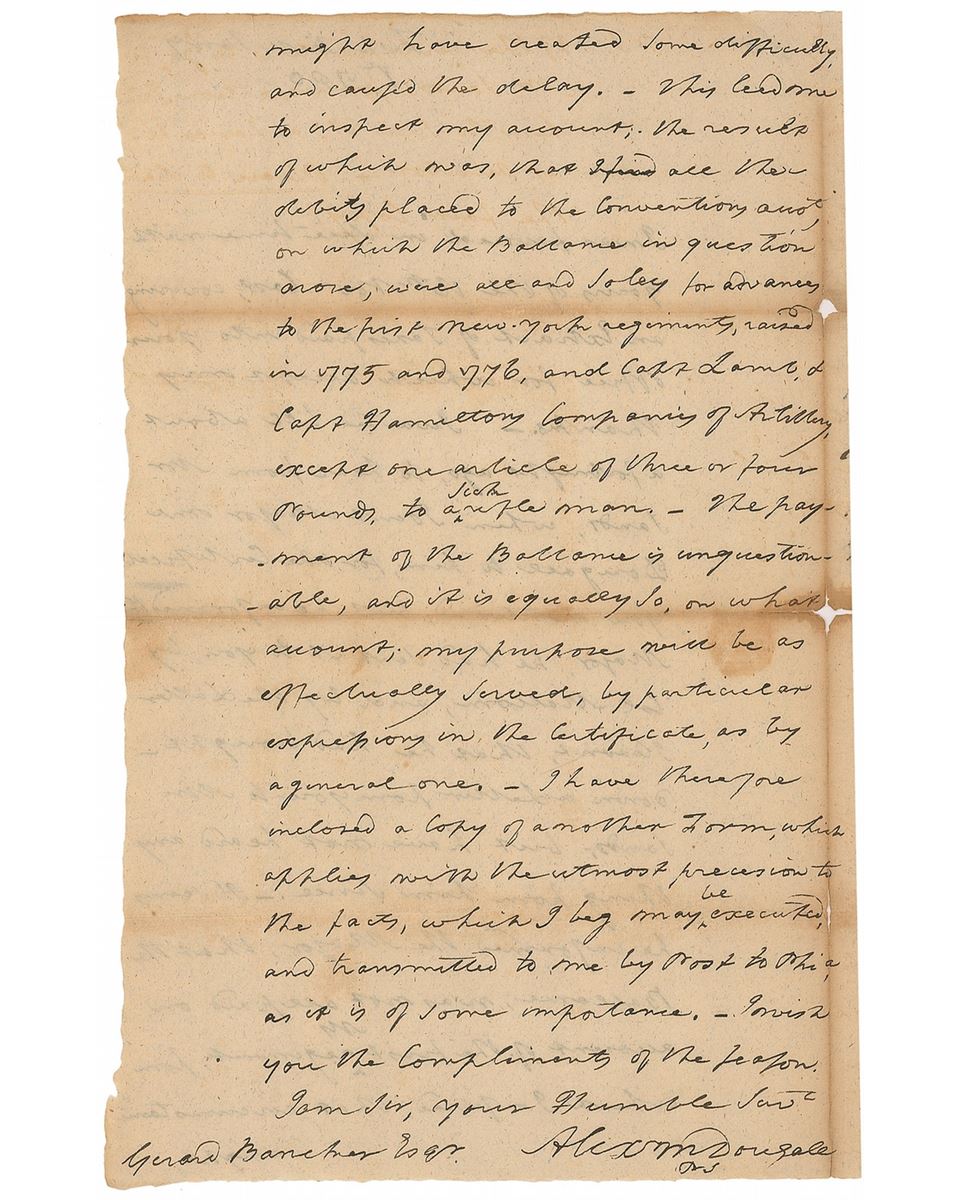 might have created some difficulty,
and caused the delay. – This leed me
to inspect my account; the result
of which was, that I find all the
debits placed to the Conventions acct,
on which the Ballance in question
arose, were all and Soley for advances
to the first New-York regiments, raised
in 1775 and 1776, and Capt Lamb, &
Capt Hamiltons Companies of Artillery,
except one article of three or four
Pounds, to a sick rifle man. – The pay-
-ment of the Ballance is unquestion-
-able, and it is equally So, on what
account; my purpose will be as
effectually Served, by particular
expressions in the Certificate, as by
a general one. – I have therefore
inclosed a Copy of another Form, which
applies with the utmost precesion to
the facts, which I beg may be executed,
and transmitted to me by Post to Phia,
as it is of Some importance. – I wish
you the Compliments of the Season.
I am Sir, your Humble Servt
Gerard Bancker Esqr. Alexr McDougall